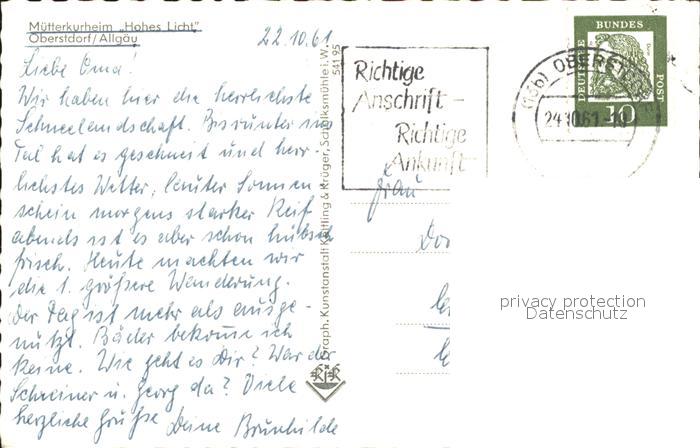 Mütterkurheim „Hohes Licht,"
Oberstdorf/Allgäu
22.10.61
Liebe Oma!
Wir haben hier die herrlichste
Schneelandschaft. Bis runter ins
Tal hat es geschneit und herr-
lichstes Wetter, lauter Sonnen
schein morgens starker Reif
abends ist es aber schon hübsch
frisch. Heute machten wir
die 1. größere Wanderung.
Der Tag ist mehr als ausge-
nützt. Bäder bekomme ich
keine. Wie geht es Dir? War der
Schreiner u. Georg da? Viele
herzliche Grüße Deine Brunhilde
Graph. Kunstanstalt Kettling & Krüger, Schalksmühle i. W.
541 95
K&K
Richtige
Anschrift -
Richtige
Ankunft
(13b) OBERSTDORF
24.10.61
DEUTSCHE
BUNDES
POST
10
Frau
privacy protection
Datenschutz